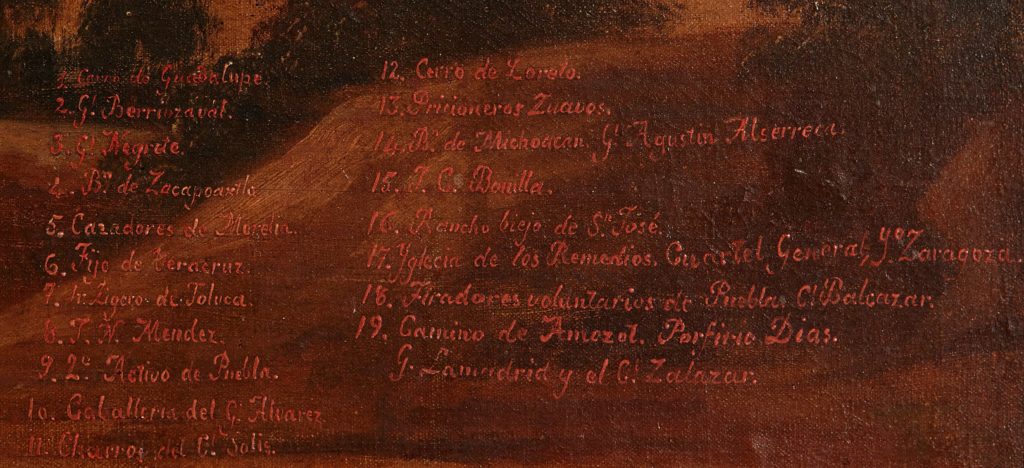 1. Cerro de Guadalupe.
2. Gl. Berriozával.
3. Gl. Negrete.
4. Bn. de Zacapoaxtla
5. Cazadores de Morelia.
6. Fijo de Veracruz.
7. Ligero de Toluca.
8. T. N. Mendez.
9. 2º. Activo de Puebla.
10. Caballeria del Gl. Alvarez
11. Charros del Cl. Solis.
12. Cerro de Loreto.
13. Pricioneros Zuavos.
14. Bn. de Michoacan. Gl. Agustin Alcerreca.
15. T. C. Bonilla.
16. Rancho biejo de Sn. José.
17. Yglecia de los Remedios. Cuartel General, Zaragoza.
18. Tiradores voluntarios de Puebla Cl. Balcazar.
19. Camino de Amozol. Porfirio Dias.
G. Lamadrid y el Cl. Zalazar.